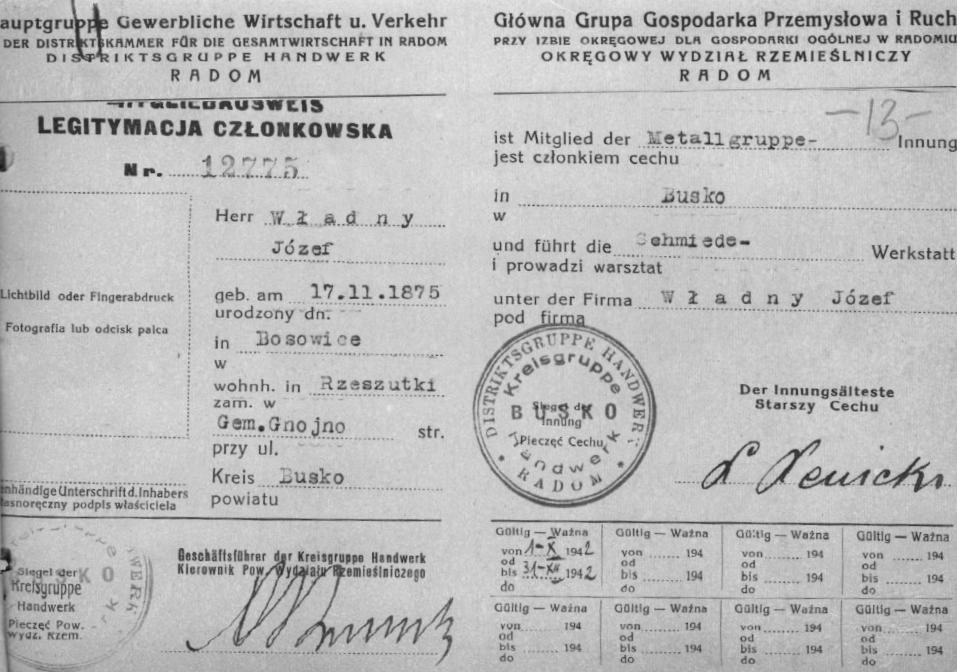 auptgruppe Gewerbliche Wirtschaft u. Verkehr
DER DISTRIKTSKAMMER FÜR DIE GESAMTWIRTSCHAFT IN RADOM
DISTRIKTSGRUPPE HANDWERK
RADOM
MITGLIEDAUSWEIS
LEGITYMACJA CZŁONKOWSKA
Nr. 12775
Herr Władny
Józef
Lichtbild oder Fingerabdruck
Fotografia lub odcisk palca
geb. am 17.11.1875
urodzony dn.
in Bosowice
w
wohnh. in Rzeszutki
zam. w
Gem.Gnojno str.
przy ul.
Kreis Busko
powiatu
nhändige Unterschrift d. Inhabers
łasnoręczny podpis właściciela
Siegel der
Kreisgruppe
Handwerk
Pieczęć Pow.
Wydz. Rzem.
Geschäftsführer der Kreisgruppe Handwerk
Kierownik Pow. Wydziału Rzemieślniczego
Główna Grupa Gospodarka Przemysłowa i Ruch
PRZY IZBIE OKRĘGOWEJ DLA GOSPODARKI OGÓLNEJ W RADOMIU
OKRĘGOWY WYDZIAŁ RZEMIEŚLNICZY
RADOM
-13-
ist Mitglied der Metallgruppe- Innung
jest członkiem cechu
in Busko
w
und führt die Schmiede- Werkstatt
i prowadzi warsztat
unter der Firma Władny Józef
pod firmą
DISTRIKTSGRUPPE HANDWERK
Kreisgruppe
BUSKO
Handwerk
RADOM
Siegel d.
Innung
Pieczęć Cechu
Der Innungsälteste
Starszy Cechu
Gültig — Ważna Gültig — Ważna Gültig — Ważna Gültig — Ważna
von 1-X 1942 von 194 von 194 von 194
od od od od
bis 31-XII 1942 bis 194 bis 194 bis 194
do do do do
Gültig — Ważna Gültig — Ważna Gültig — Ważna Gültig — Ważna
von 194 von 194 von 194 von 194
od od od od
bis 194 bis 194 bis 194 bis 194
do do do do